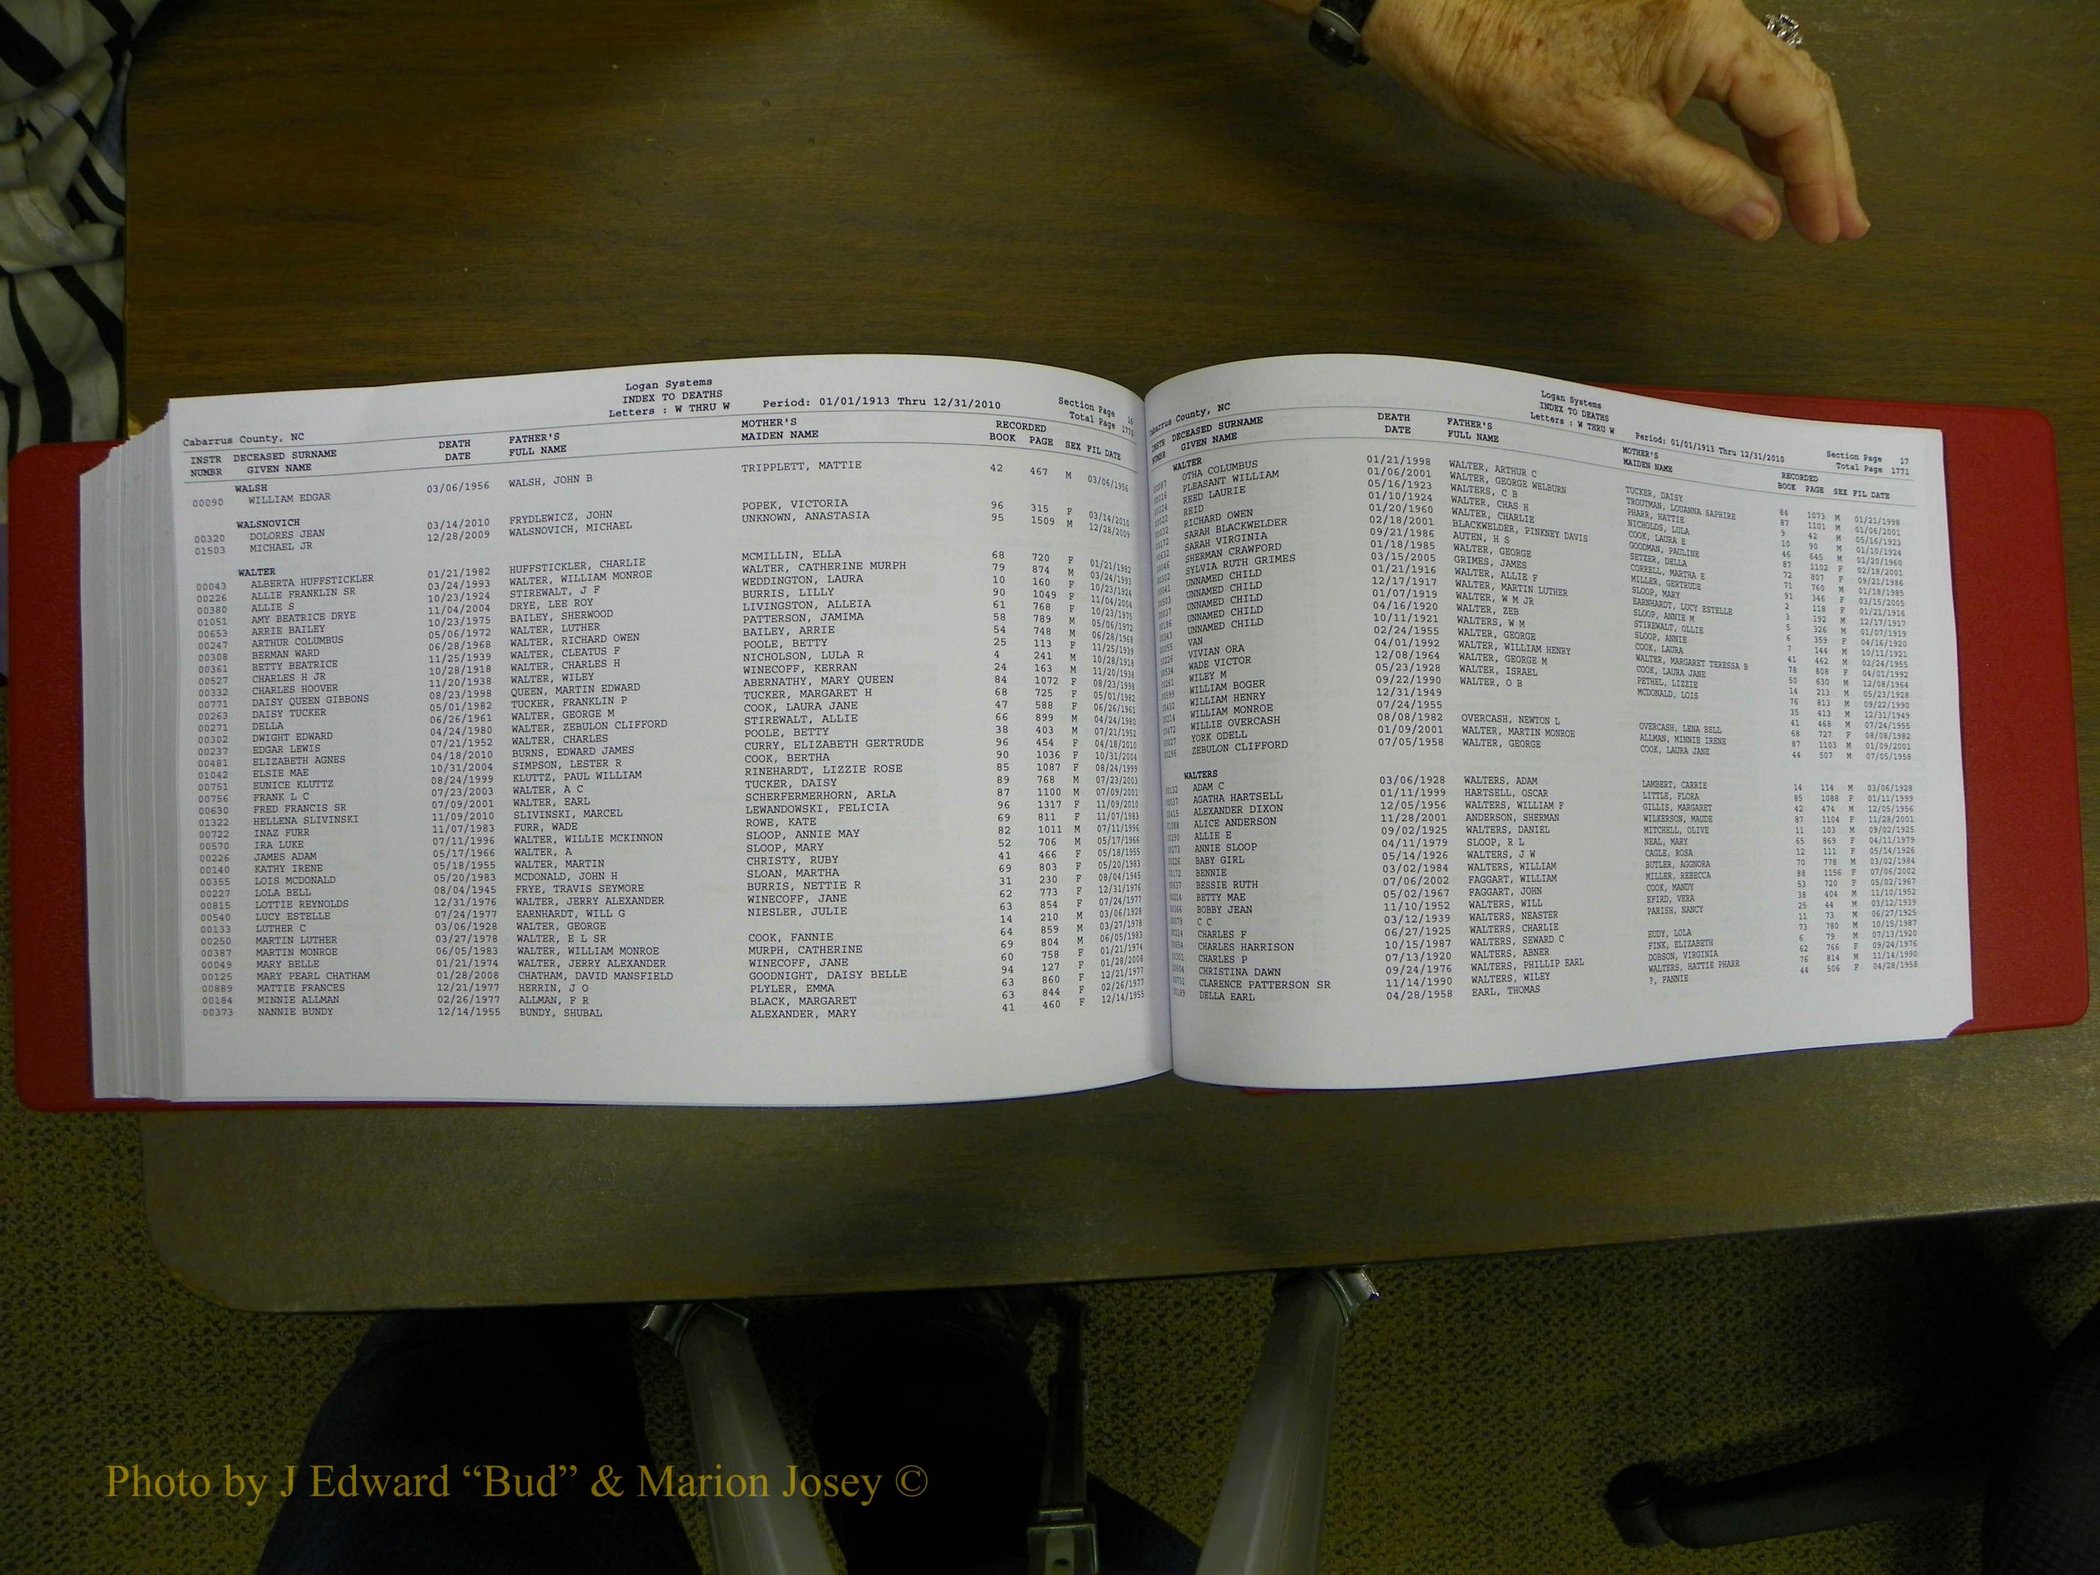 Logan Systems
INDEX TO DEATHS
Cabarrus County, NC Letters : W THRU W Period: 01/01/1913 Thru 12/31/2010 Section Page 16
Total Page 1770
INSTR DECEASED SURNAME DEATH FATHER'S MOTHER'S RECORDED
NUMBR GIVEN NAME DATE FULL NAME MAIDEN NAME BOOK PAGE SEX FIL DATE
WALSH
00090 WILLIAM EDGAR 03/06/1956 WALSH, JOHN B TRIPPLETT, MATTIE 42 467 M 03/06/1956
WALSNOVICH
00320 DOLORES JEAN 03/14/2010 FRYDLEWICZ, JOHN POPEK, VICTORIA 96 315 F 03/14/2010
01503 MICHAEL JR 12/28/2009 WALSNOVICH, MICHAEL UNKNOWN, ANASTASIA 95 1509 M 12/28/2009
WALTER
00043 ALBERTA HUFFSTICKLER 01/21/1982 HUFFSTICKLER, CHARLIE MCMILLIN, ELLA 68 720 F 01/21/1982
00226 ALLIE FRANKLIN SR 03/24/1993 WALTER, WILLIAM MONROE WALTER, CATHERINE MURPH 79 874 M 03/24/1993
00380 ALLIE S 10/23/1924 STIREWALT, J F WEDDINGTON, LAURA 10 160 F 10/23/1924
01051 AMY BEATRICE DRYE 11/04/2004 DRYE, LEE ROY BURRIS, LILLY 90 1049 F 11/04/2004
00653 ARRIE BAILEY 10/23/1975 BAILEY, SHERWOOD LIVINGSTON, ALLEIA 61 768 F 10/23/1975
00247 ARTHUR COLUMBUS 05/06/1972 WALTER, LUTHER PATTERSON, JAMIMA 58 789 M 05/06/1972
00308 BERMAN WARD 06/28/1968 WALTER, RICHARD OWEN BAILEY, ARRIE 54 748 M 06/28/1968
00361 BETTY BEATRICE 11/25/1939 WALTER, CLEATUS F POOLE, BETTY 25 113 F 11/25/1939
00527 CHARLES H JR 10/28/1918 WALTER, CHARLES H NICHOLSON, LULA R 4 241 M 10/28/1918
00332 CHARLES HOOVER 11/20/1938 WALTER, WILEY WINECOFF, KERRAN 24 163 M 11/20/1938
00771 DAISY QUEEN GIBBONS 08/23/1998 QUEEN, MARTIN EDWARD ABERNATHY, MARY QUEEN 84 1072 F 08/23/1998
00263 DAISY TUCKER 05/01/1982 TUCKER, FRANKLIN P TUCKER, MARGARET H 68 725 F 05/01/1982
00271 DELLA 06/26/1961 WALTER, GEORGE M COOK, LAURA JANE 47 588 F 06/26/1961
00302 DWIGHT EDWARD 04/24/1980 WALTER, ZEBULON CLIFFORD STIREWALT, ALLIE 66 899 M 04/24/1980
00237 EDGAR LEWIS 07/21/1952 WALTER, CHARLES POOLE, BETTY 38 403 M 07/21/1952
00481 ELIZABETH AGNES 04/18/2010 BURNS, EDWARD JAMES CURRY, ELIZABETH GERTRUDE 96 454 F 04/18/2010
01042 ELSIE MAE 10/31/2004 SIMPSON, LESTER R COOK, BERTHA 90 1036 F 10/31/2004
00751 EUNICE KLUTTZ 08/24/1999 KLUTTZ, PAUL WILLIAM RINEHARDT, LIZZIE ROSE 85 1087 F 08/24/1999
00756 FRANK L C 07/23/2003 WALTER, A C TUCKER, DAISY 89 768 M 07/23/2003
00630 FRED FRANCIS SR 07/09/2001 WALTER, EARL SCHERFERMERHORN, ARLA 87 1100 M 07/09/2001
01322 HELLENA SLIVINSKI 11/09/2010 SLIVINSKI, MARCEL LEWANDOWSKI, FELICIA 96 1317 F 11/09/2010
00722 INAZ FURR 11/07/1983 FURR, WADE ROWE, KATE 69 811 F 11/07/1983
00570 IRA LUKE 07/11/1996 WALTER, WILLIE MCKINNON SLOOP, ANNIE MAY 82 1011 M 07/11/1996
00226 JAMES ADAM 05/17/1966 WALTER, A SLOOP, MARY 52 706 M 05/17/1966
00140 KATHY IRENE 05/18/1955 WALTER, MARTIN CHRISTY, RUBY 41 466 F 05/18/1955
00355 LOIS MCDONALD 05/20/1983 MCDONALD, JOHN H SLOAN, MARTHA 69 803 F 05/20/1983
00227 LOLA BELL 08/04/1945 FRYE, TRAVIS SEYMORE BURRIS, NETTIE R 31 230 F 08/04/1945
00815 LOTTIE REYNOLDS 12/31/1976 WALTER, JERRY ALEXANDER WINECOFF, JANE 62 773 F 12/31/1976
00540 LUCY ESTELLE 07/24/1977 EARNHARDT, WILL G NIESLER, JULIE 63 854 F 07/24/1977
00133 LUTHER C 03/06/1928 WALTER, GEORGE 14 210 M 03/06/1928
00250 MARTIN LUTHER 03/27/1978 WALTER, E L SR COOK, FANNIE 64 859 M 03/27/1978
00387 MARTIN MONROE 06/05/1983 WALTER, WILLIAM MONROE MURPH, CATHERINE 69 804 M 06/05/1983
00049 MARY BELLE 01/21/1974 WALTER, JERRY ALEXANDER WINECOFF, JANE 60 758 F 01/21/1974
00125 MARY PEARL CHATHAM 01/28/2008 CHATHAM, DAVID MANSFIELD GOODNIGHT, DAISY BELLE 94 127 F 01/28/2008
00889 MATTIE FRANCES 12/21/1977 HERRIN, J O PLYLER, EMMA 63 860 F 12/21/1977
00184 MINNIE ALLMAN 02/26/1977 ALLMAN, F R BLACK, MARGARET 63 844 F 02/26/1977
00373 NANNIE BUNDY 12/14/1955 BUNDY, SHUBAL ALEXANDER, MARY 41 460 F 12/14/1955
Logan Systems
INDEX TO DEATHS
Cabarrus County, NC Letters : W THRU W Period: 01/01/1913 Thru 12/31/2010 Section Page 17
Total Page 1771
INSTR DECEASED SURNAME DEATH FATHER'S MOTHER'S RECORDED
NUMBR GIVEN NAME DATE FULL NAME MAIDEN NAME BOOK PAGE SEX FIL DATE
WALTER
OTHA COLUMBUS 01/21/1998 WALTER, ARTHUR C TUCKER, DAISY 84 1073 M 01/21/1998
PLEASANT WILLIAM 01/06/2001 WALTER, GEORGE WELBURN TROUTMAN, LOUANNA SAPHIRE 87 1101 M 01/06/2001
REED LAURIE 05/16/1923 WALTERS, C B PHARR, HATTIE 9 42 M 05/16/1923
REID 01/10/1924 WALTER, CHAS H NICHOLDS, LULA 10 90 M 01/10/1924
RICHARD OWEN 01/20/1960 WALTER, CHARLIE COOK, LAURA E 46 645 M 01/20/1960
SARAH BLACKWELDER 02/18/2001 BLACKWELDER, PINKNEY DAVIS GOODMAN, PAULINE 87 1102 F 02/18/2001
SARAH VIRGINIA 09/21/1986 AUTEN, H S SETZER, DELLA 72 807 F 09/21/1986
SHERMAN CRAWFORD 01/18/1985 WALTER, GEORGE CORRELL, MARTHA E 71 760 M 01/18/1985
SYLVIA RUTH GRIMES 03/15/2005 GRIMES, JAMES MILLER, GERTRUDE 91 346 F 03/15/2005
UNNAMED CHILD 01/21/1916 WALTER, ALLIE F SLOOP, MARY 2 118 F 01/21/1916
UNNAMED CHILD 12/17/1917 WALTER, MARTIN LUTHER EARNHARDT, LUCY ESTELLE 3 192 M 12/17/1917
UNNAMED CHILD 01/07/1919 WALTER, W M JR SLOOP, ANNIE M 5 326 M 01/07/1919
UNNAMED CHILD 04/16/1920 WALTER, ZEB STIREWALT, OLLIE 6 359 F 04/16/1920
UNNAMED CHILD 10/11/1921 WALTERS, W M SLOOP, ANNIE 7 144 M 10/11/1921
VAN 02/24/1955 WALTER, GEORGE COOK, LAURA 41 462 M 02/24/1955
VIVIAN ORA 04/01/1992 WALTER, WILLIAM HENRY WALTER, MARGARET TERESSA B 78 808 F 04/01/1992
WADE VICTOR 12/08/1964 WALTER, GEORGE M COOK, LAURA JANE 50 630 M 12/08/1964
WILEY M 05/23/1928 WALTER, ISRAEL PETHEL, LIZZIE 14 213 M 05/23/1928
WILLIAM BOGER 09/22/1990 WALTER, O B MCDONALD, LOIS 76 813 M 09/22/1990
WILLIAM HENRY 12/31/1949 35 413 M 12/31/1949
WILLIAM MONROE 07/24/1955 41 468 M 07/24/1955
WILLIE OVERCASH 08/08/1982 OVERCASH, NEWTON L OVERCASH, LENA BELL 68 727 F 08/08/1982
YORK ODELL 01/09/2001 WALTER, MARTIN MONROE ALLMAN, MINNIE IRENE 87 1103 M 01/09/2001
ZEBULON CLIFFORD 07/05/1958 WALTER, GEORGE COOK, LAURA JANE 44 507 M 07/05/1958
WALTERS
ADAM C 03/06/1928 WALTERS, ADAM LAMBERT, CARRIE 14 114 M 03/06/1928
AGATHA HARTSELL 01/11/1999 HARTSELL, OSCAR LITTLE, FLORA 85 1088 F 01/11/1999
ALEXANDER DIXON 12/05/1956 WALTERS, WILLIAM F GILLIS, MARGARET 42 474 M 12/05/1956
ALICE ANDERSON 11/28/2001 ANDERSON, SHERMAN WILKERSON, MAUDE 87 1104 F 11/28/2001
ALLIE E 09/02/1925 WALTERS, DANIEL MITCHELL, OLIVE 11 103 M 09/02/1925
ANNIE SLOOP 04/11/1979 SLOOP, R L NEAL, MARY 65 869 F 04/11/1979
BABY GIRL 05/14/1926 WALTERS, J W CAGLE, ROSA 12 111 F 05/14/1926
BENNIE 03/02/1984 WALTERS, WILLIAM BUTLER, AGGNORA 70 778 M 03/02/1984
BESSIE RUTH 07/06/2002 FAGGART, WILLIAM MILLER, REBECCA 88 1156 F 07/06/2002
BETTY MAE 05/02/1967 FAGGART, JOHN COOK, MANDY 53 720 F 05/02/1967
BOBBY JEAN 11/10/1952 WALTERS, WILL EFIRD, VERA 38 404 M 11/10/1952
C C 03/12/1939 WALTERS, NEASTER PARISH, NANCY 25 44 M 03/12/1939
CHARLES F 06/27/1925 WALTERS, CHARLIE 11 73 M 06/27/1925
CHARLES HARRISON 10/15/1987 WALTERS, SEWARD C EUDY, LOLA 73 780 M 10/15/1987
CHARLES P 07/13/1920 WALTERS, ABNER FINK, ELIZABETH 6 79 M 07/13/1920
CHRISTINA DAWN 09/24/1976 WALTERS, PHILLIP EARL DOBSON, VIRGINIA 62 766 F 09/24/1976
CLARENCE PATTERSON SR 11/14/1990 WALTERS, WILEY WALTERS, HATTIE PHARR 76 814 M 11/14/1990
DELLA EARL 04/28/1958 EARL, THOMAS ?, FANNIE 44 506 F 04/28/1958
Photo by J Edward “Bud” & Marion Josey ©